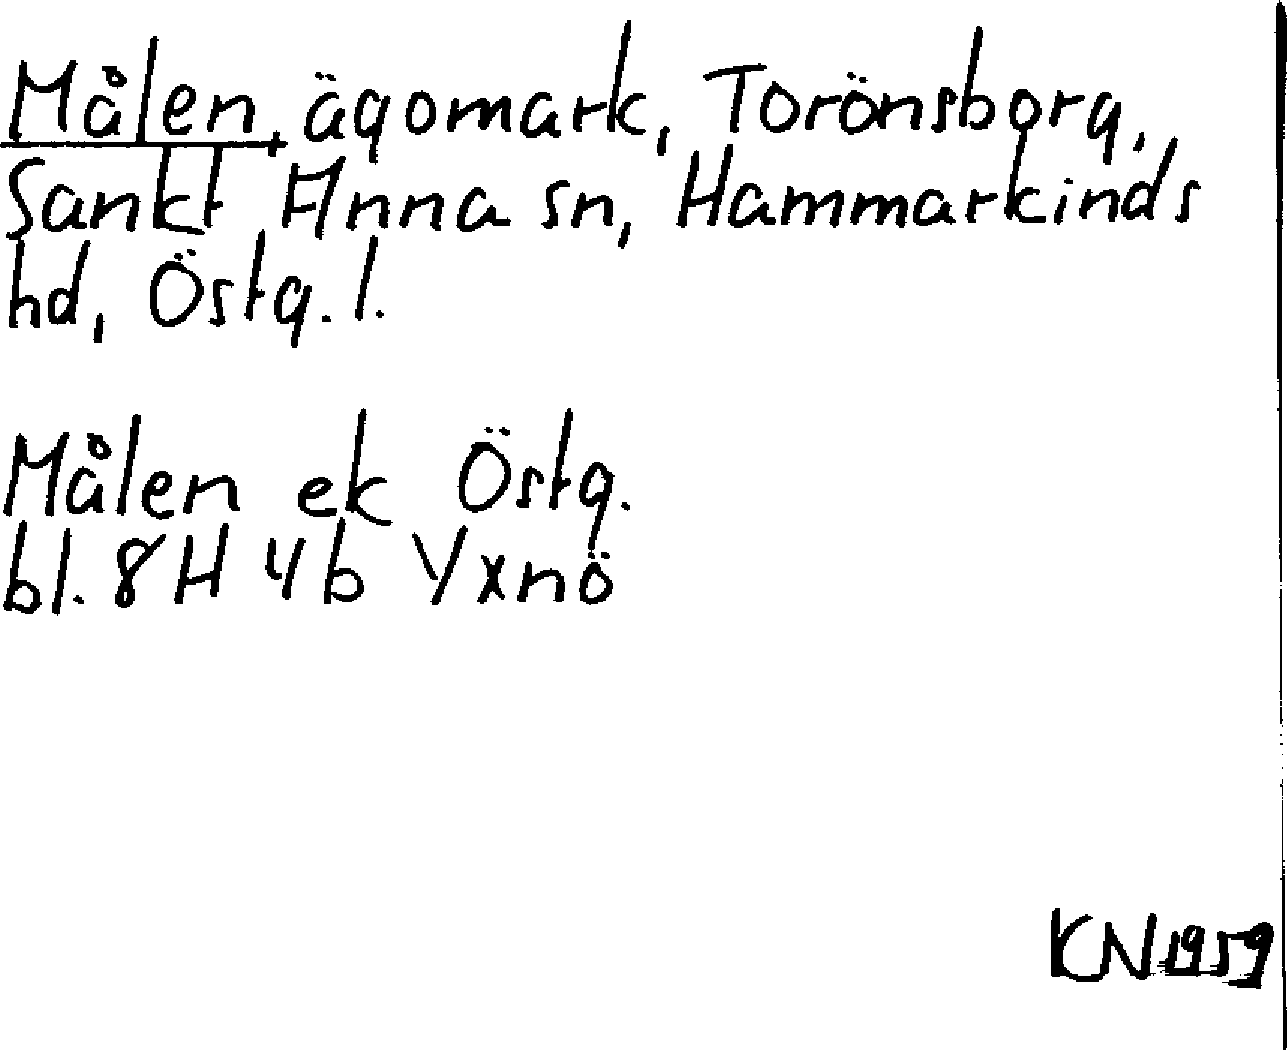 Målen, ägomark, Torönsborg,
Sankt Anna sn, Hammarkinds
hd, Östg. l.
Målen ek Östg.
bl. 8H 4b Yxnö
KN 1959